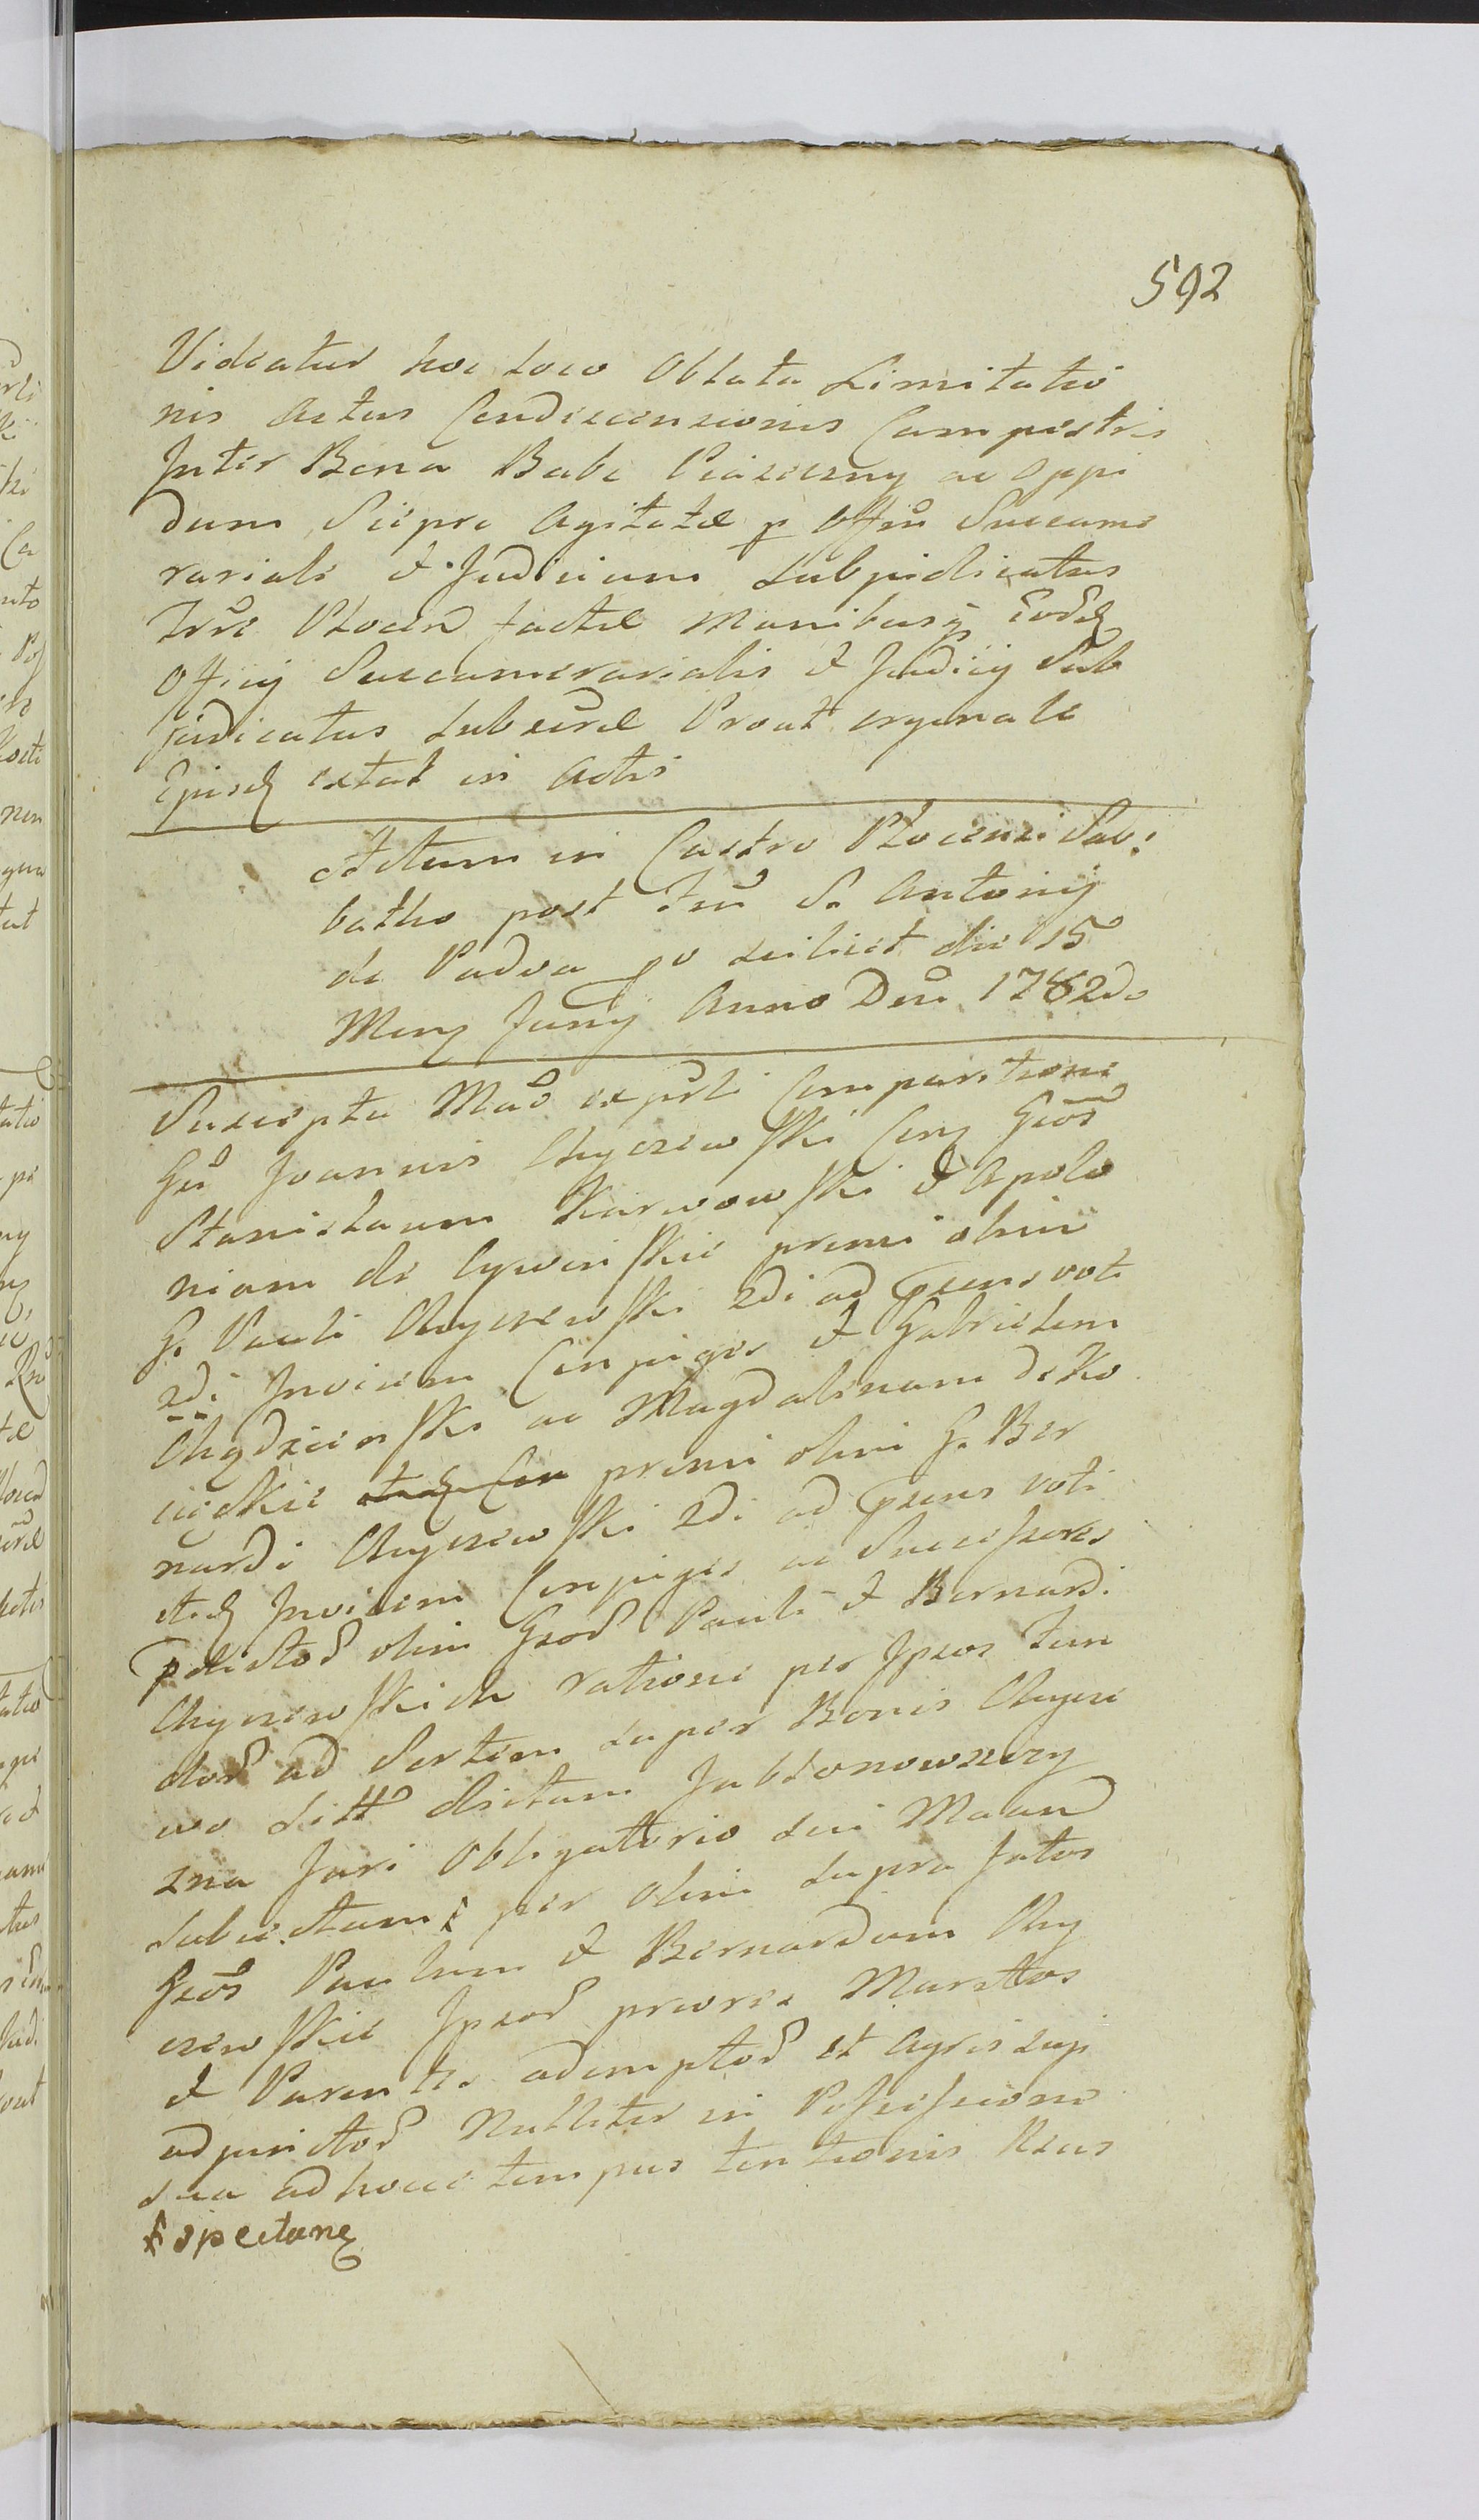 592
Videatur hoc loco Oblata Limitatio
nis Actus Condescensionis Campestris
Inter Bona Babe Piaseczny ac Oppi
dum Sierpc Agitatæ p Offiu Succame
rariale et Judicium Subjudicatus
Trre Plocen factæ Manibusq Eordq
Officij Succamerarialis et Judicij Sub
judicatus Subscræ Prout orginale
Ejusdq extat in Actis
Actum in Castro Plocensi Sab:
batho post Fm S. Antonij
de Padva po scilicet die 15
Menq Junij Anno Dni 1782do
Suscepta Mao expsti Comparitione
Gsi Joannis Chyczewski Conq Gsos
Stanislaum Karwowski et Apolo
niam de Cywinskie primi olim
G. Pauli Chyczewski 2di ad psens voti
2di Invicem Conjuges et Gabrielem
Chądzienski ac Magdalenam de Ko
ciędkie primi olim G. Ber
nardi Chyczewski 2di ad psens voti
etq Invicem Conjuges ac Successores
pdictos olim Gsos Pauli et Bernardi
Chyczewskich ratione per Ipsos Fun
dos ad Sortem super Bonis Chycze
wo Litt dictam Jabłonowszczy
zna Juri Obligatorio sui Maan
subiectam per Olim supra fatos
Gsos Paulum et Bernardum Chy
czewskie Ipsos priores Maritos
et Parentes ademptos et Agris suis
adjunctos Nulliter in Possessione
sua adhocce tempus tentionis Reus
spectanq